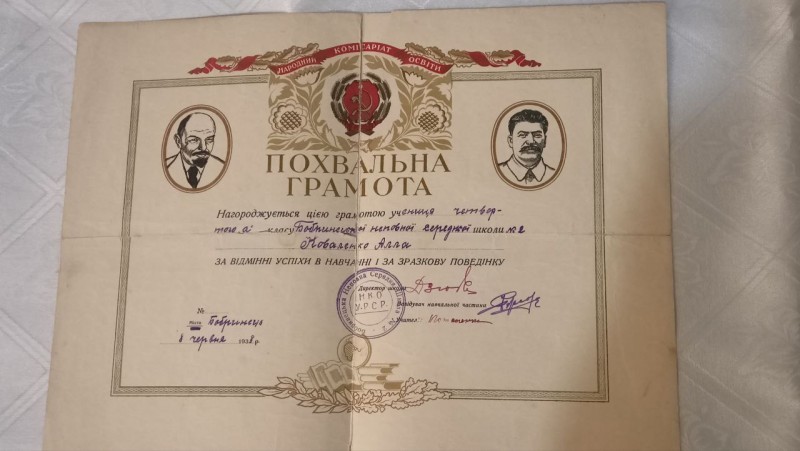 НАРОДНИЙ КОМІСАРІАТ ОСВІТИ
ПОХВАЛЬНА
ГРАМОТА
Нагороджується цією грамотою учениця четвер-
того а класу Бобринецької неповної середньої школи № 2
Коваленко Алла
ЗА ВІДМІННІ УСПІХИ В НАВЧАННІ І ЗА ЗРАЗКОВУ ПОВЕДІНКУ
Директор школи
Н.К.О
У.Р.С.Р.
Завідувач навчальної частини
Учитель:
№
місто Бобринець
8 червня 1938 р.